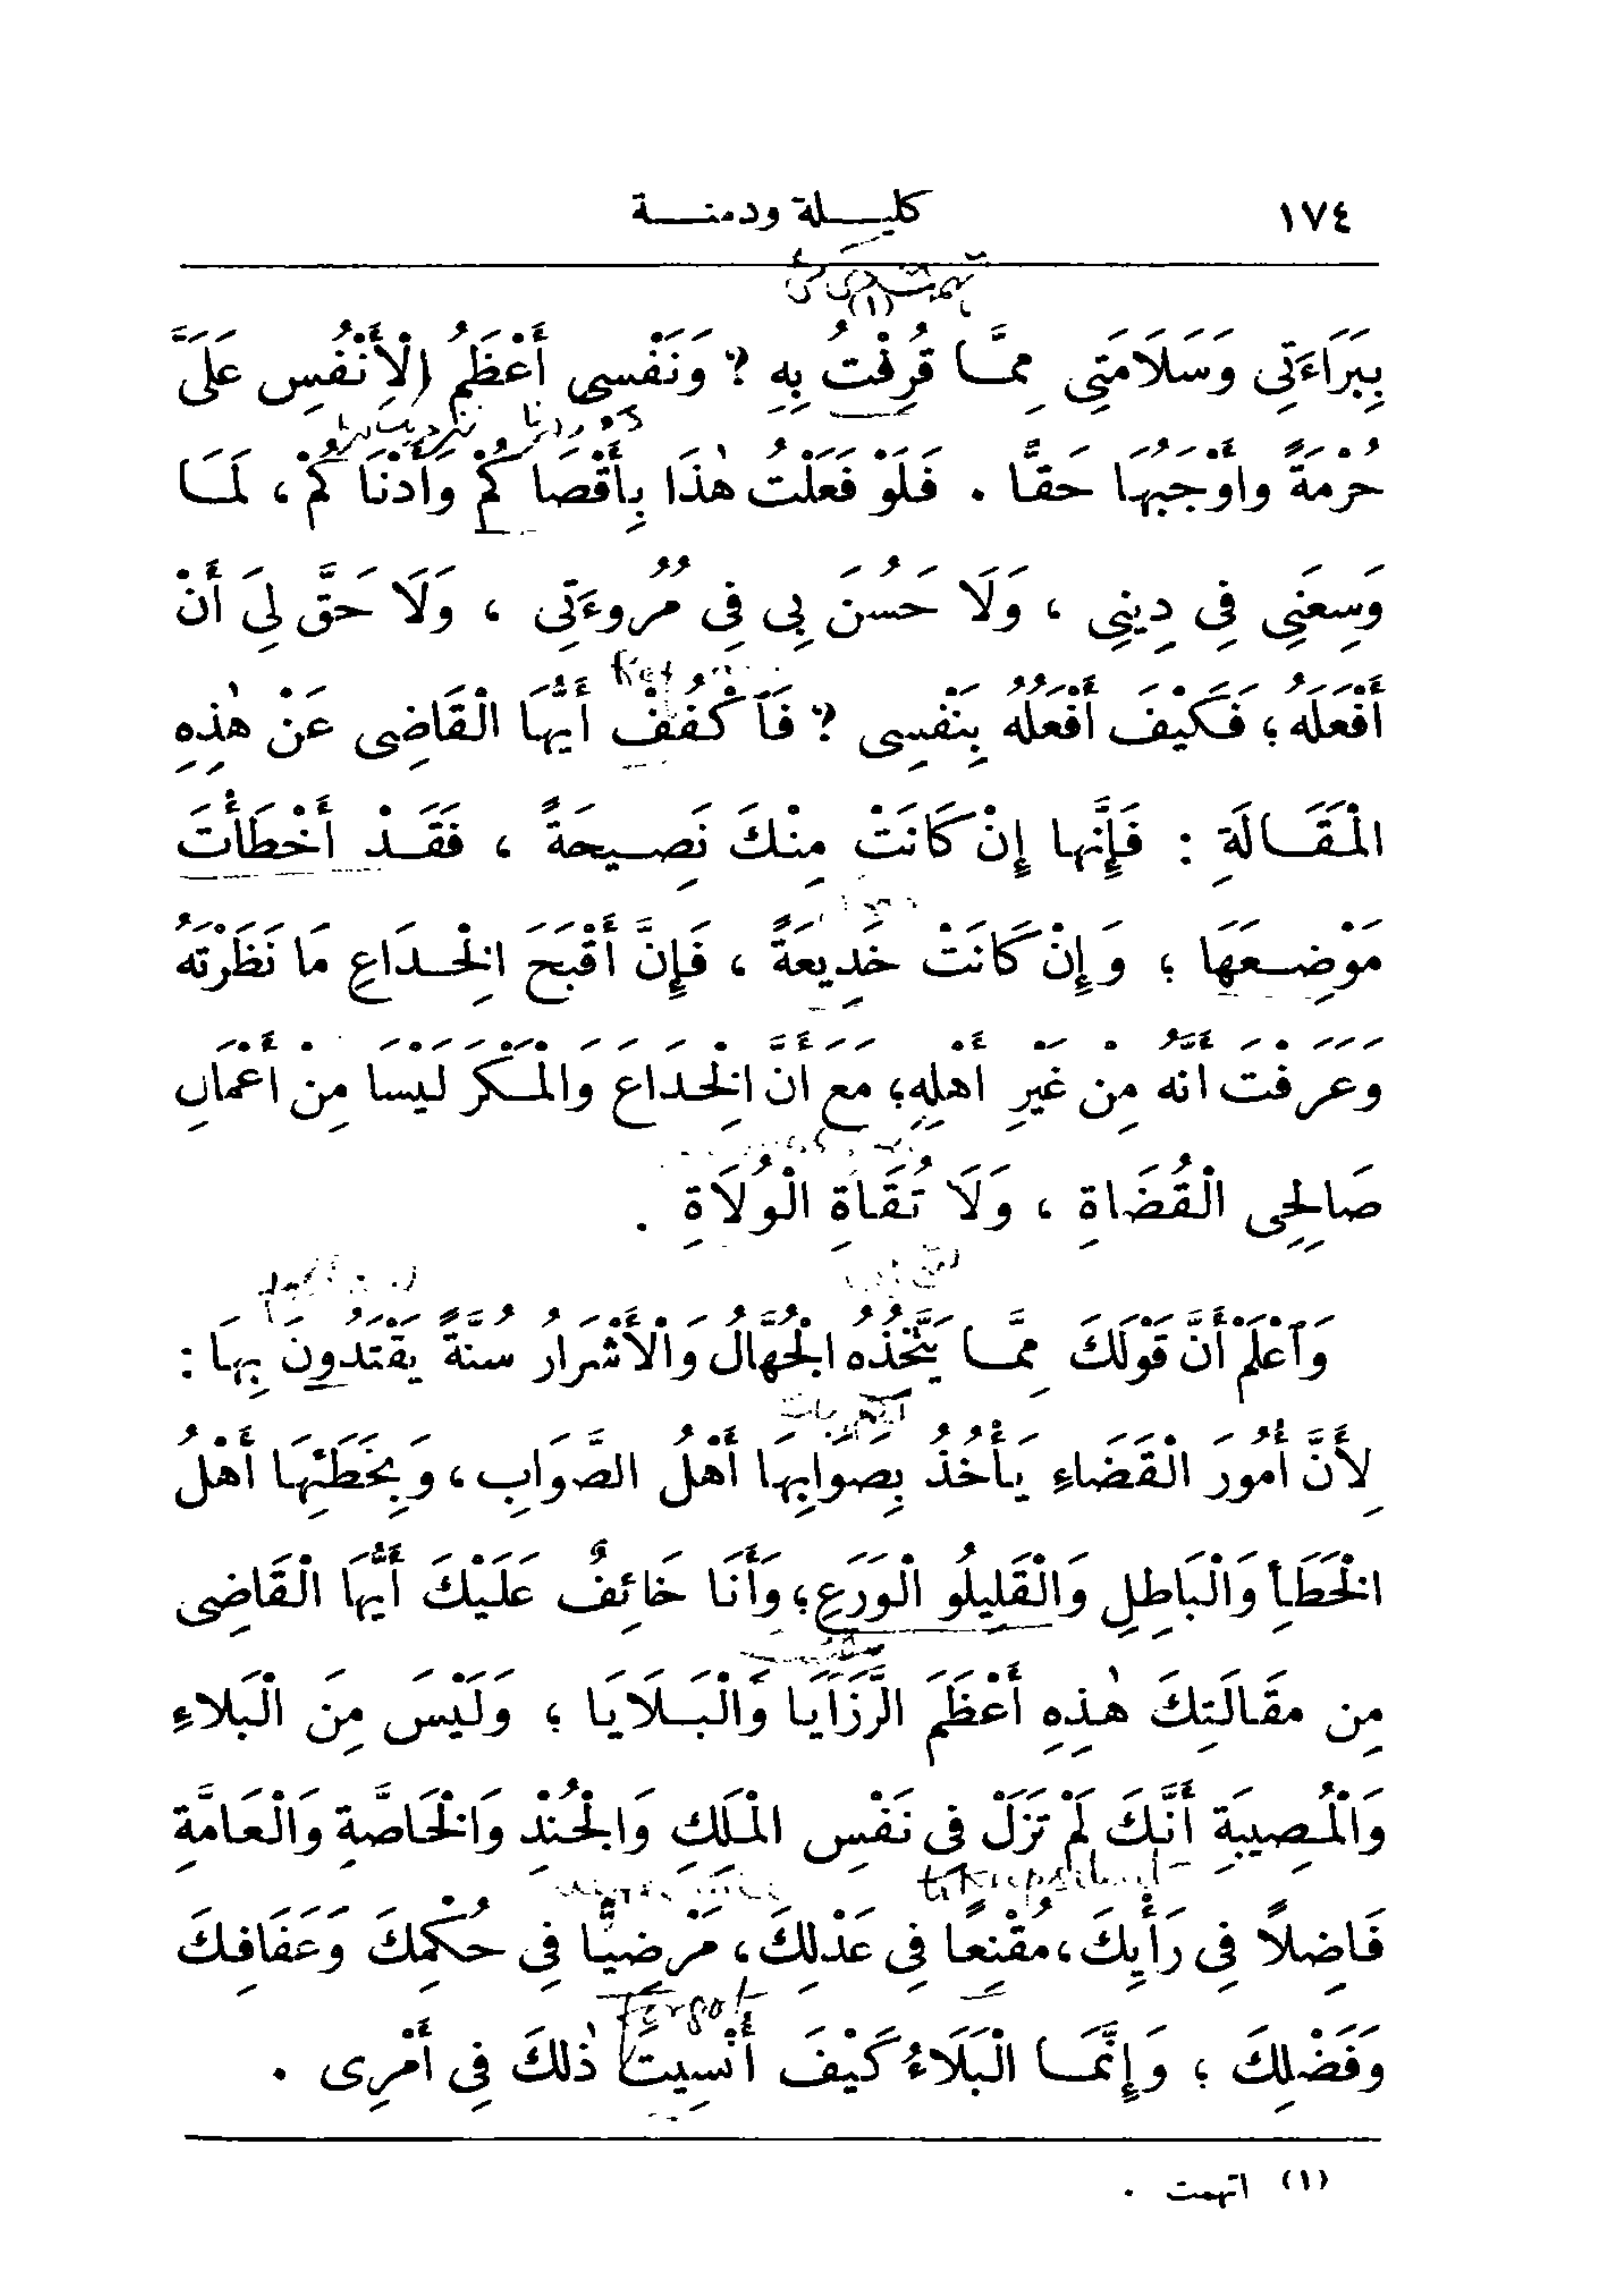 ١٧٤ كليلة ودمنة
بِبَرَاءَتِى وَسَلَامَتِى مِمَّا قُرِفْتُ (١) بِهِ ؟ وَنَفْسِى أَعْظَمُ الْأَنْفُسِ عَلَىَّ
حُرْمَةً وأَوْجَبُهَا حَقًّا . فَلَوْ فَعَلْتُ هٰذَا بِأَقْصَاكُمْ وَأَدْنَاكُمْ ، لَمَا
وَسِعَنِى فِى دِينِى ، وَلَا حَسُنَ بِى فِى مُرُوءَتِى ، وَلَا حَقَّ لِىَ أَنْ
أَفْعَلَهُ ؛ فَكَيْفَ أَفْعَلُهُ بِنَفْسِى ؟ فَاكْفُفْ أَيُّهَا الْقَاضِى عَنْ هٰذِهِ
الْمَقَالَةِ : فَإِنَّها إِنْ كَانَتْ مِنْكَ نَصِيحَةً ، فَقَدْ أَخْطَأْتَ
مَوْضِعَهَا ؛ وَإِنْ كَانَتْ خَدِيعَةً ، فَإِنَّ أَقْبَحَ الْخِدَاعِ مَا نَظَرْتَهُ
وَعَرَفْتَ أَنَّهُ مِنْ غَيْرِ أَهْلِهِ ؛ مَعَ أَنَّ الْخِدَاعَ وَالْمَكْرَ لَيْسَا مِنْ أَعْمَالِ
صَالِحِى الْقُضَاةِ ، وَلَا ثُقَاةِ الْوُلَاةِ .
وَاعْلَمْ أَنَّ قَوْلَكَ مِمَّا يَتَّخِذُهُ الْجُهَّالُ وَالْأَشْرَارُ سُنَّةً يَقْتَدُونَ بِهَا :
لِأَنَّ أُمُورَ الْقَضَاءِ يَأْخُذُ بِصَوَابِهَا أَهْلُ الصَّوَابِ ، وَبِخَطَئِهَا أَهْلُ
الْخَطَأِ وَالْبَاطِلِ وَالْقَلِيلُو الْوَرَعِ ؛ وَأَنَا خَائِفٌ عَلَيْكَ أَيُّهَا الْقَاضِى
مِن مقَالَتِكَ هٰذِهِ أَعْظَمَ الرَّزَايَا وَالْبَلَايَا ؛ وَلَيْسَ مِنَ الْبَلاءِ
وَالْمُصِيبَةِ أَنَّكَ لَمْ تَزَلْ فِى نَفْسِ الْمَلِكِ وَالْجُنْدِ وَالْخَاصَّةِ وَالْعَامَّةِ
فَاضِلاً فِى رَأْيِكَ ، مُقْنِعًا فِى عَدْلِكَ ، مَرْضِيًّا فِى حُكْمِكَ وَعَفَافِكَ
Forgot
وَفَضْلِكَ ؛ وَإِنَّمَا الْبَلَاءُ كَيْفَ أُنْسِيتَ ذٰلِكَ فِى أَمْرِى .
(١) اتهمت .